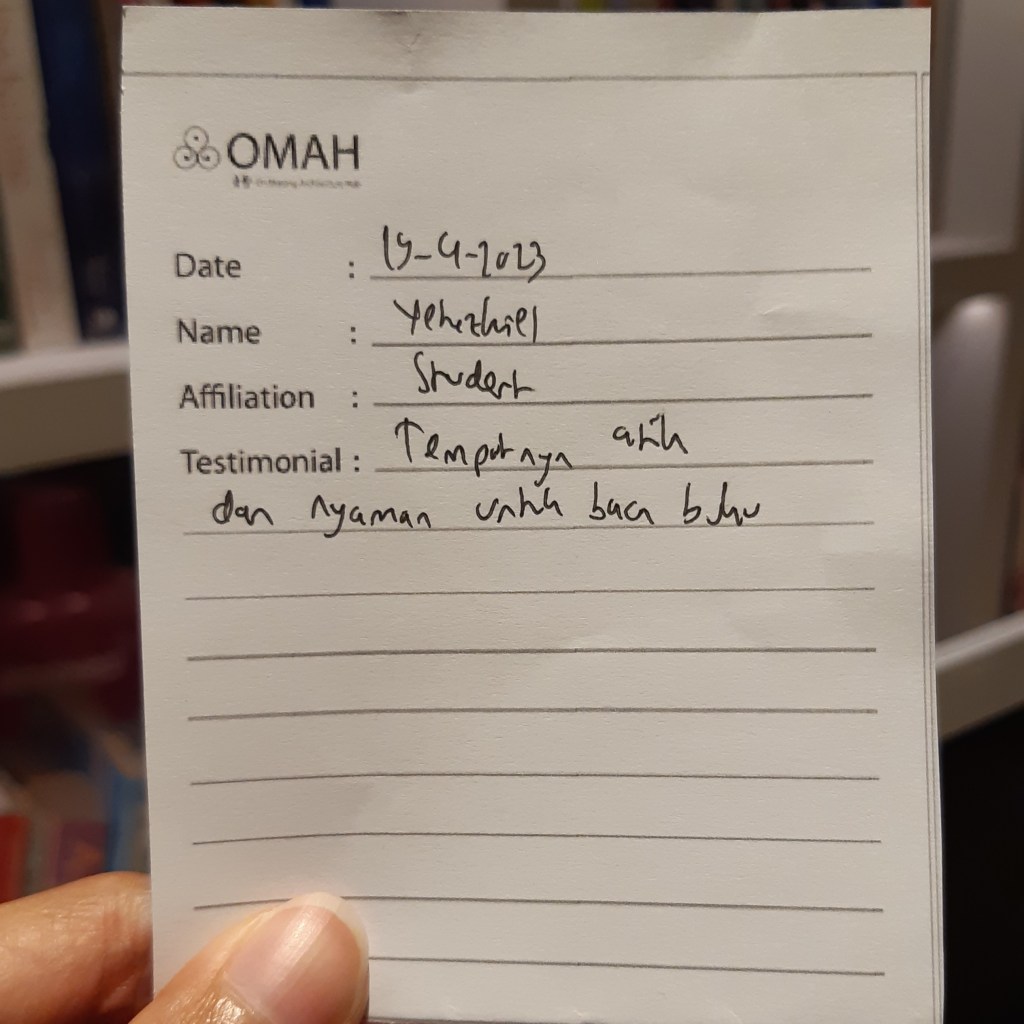 OMAH
Date : 15-4-2023
Name : Yehezkiel
Affiliation : Student
Testimonial : Tempatnya asik
dan nyaman untuk baca buku